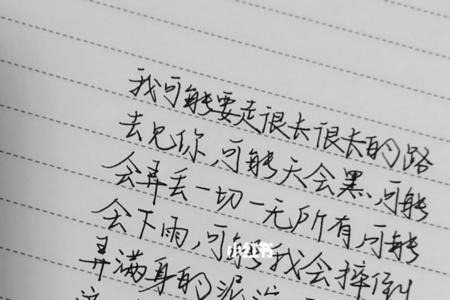 我可能要走很长很长的路
去见你,可能天会黑、可能
会弄丢一切一无所有,可能
会下雨,可能我会摔倒
弄满身的泥泞
小红书